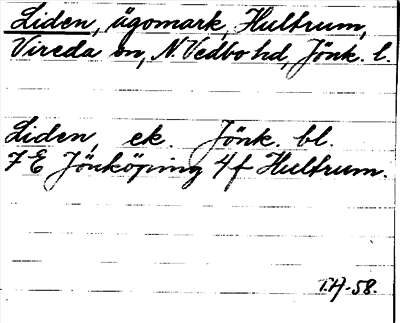 Liden, ägomark, Hultrum,
Vireda sn, N. Vedbo hd, Jönk. l.
Liden, ek. Jönk. bl.
7 E Jönköping 4f Hultrum.
T.H-58.